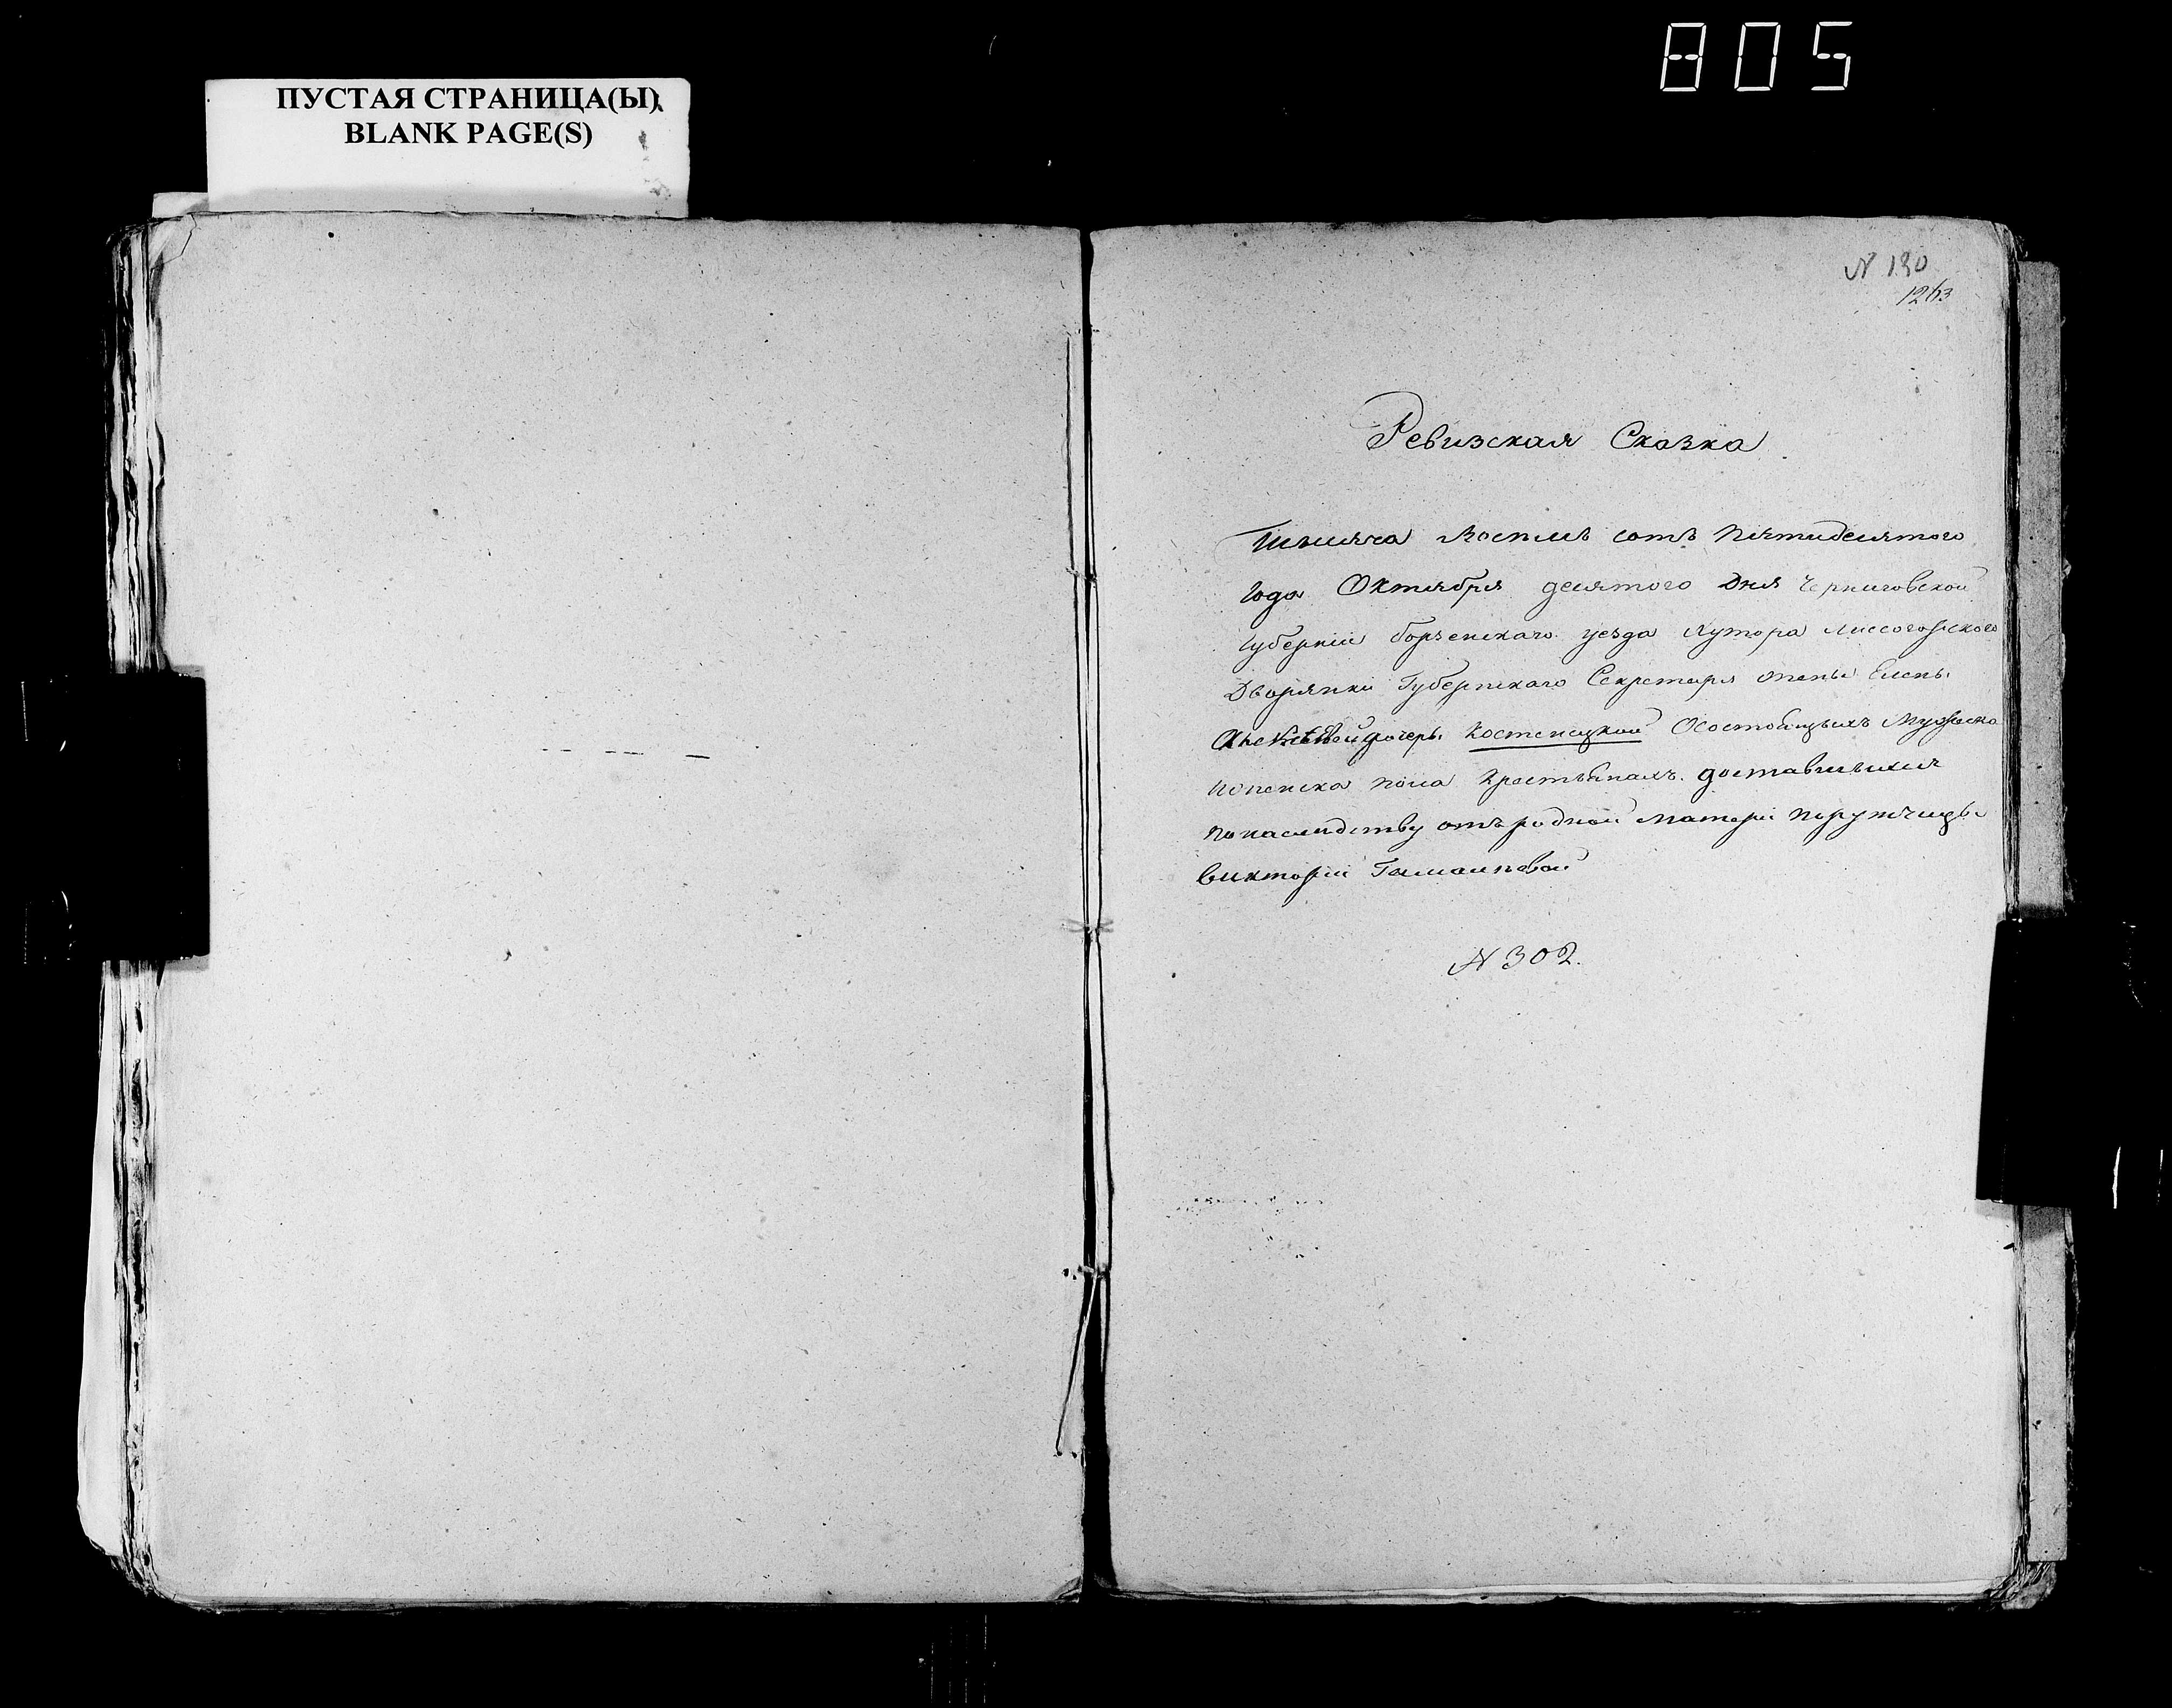 805
ПУСТАЯ СТРАНИЦА(Ы)
BLANK PAGE(S)
N 130
1263
Ревизская Сказка
Тысяча Восемь сотъ Пятидесятого
Года Октября десятого Дня Черниговской
Губернии Борзенскаго уезда Хутора Лиссогорского
Дворянки Губернскаго Секретаря жены Елены
дочери Костенецкой Осостоящихъ Мужеска
Иженска пола Крестьянахъ доставшихся
Понаследству отъ родной Матери Поручицы
Викторіи
N 302.